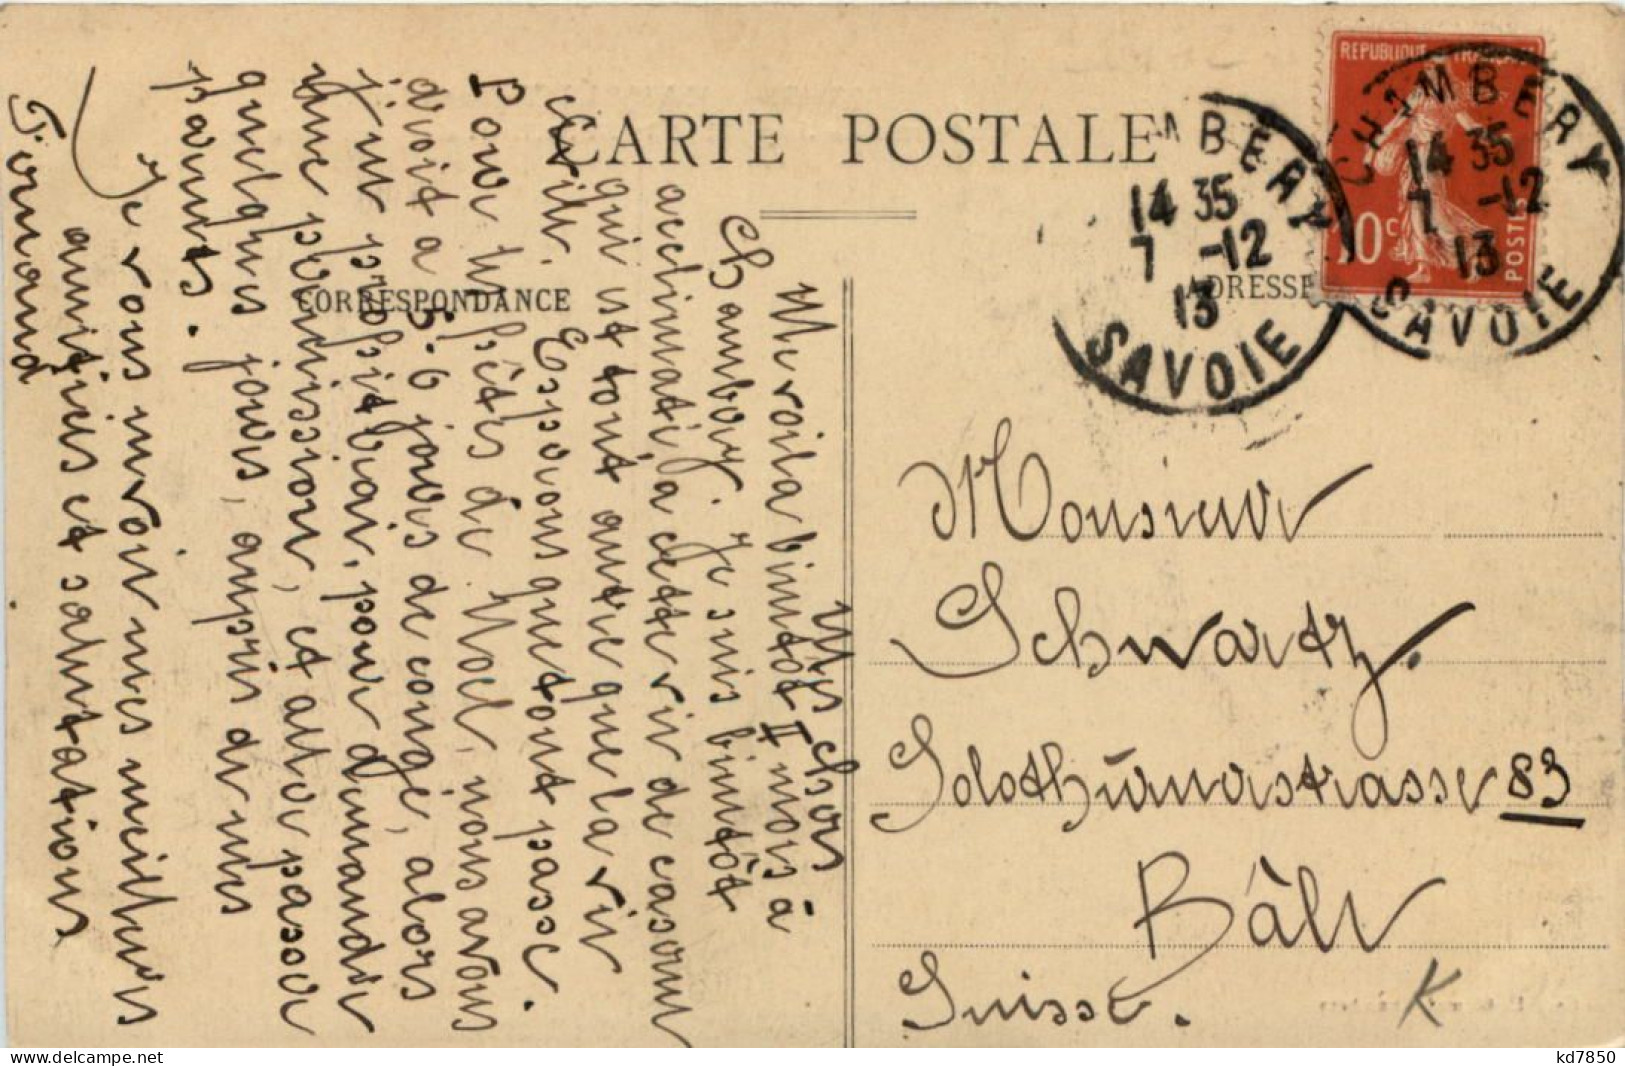 CARTE POSTALE
CORRESPONDANCE
ADRESSE
REPUBLIQUE FRANÇAISE
10c
POSTES
CHAMBERY
14 35
7 -12
13
SAVOIE
MBERY
14 35
7 -12
13
SAVOIE
Mes chers
Me voila bientot II mois à
Chambery. Je suis bientôt
acclimaté à cette vie de caserne
qui est tout autre que la vie
civile. Espérons que tout passe.
Pour les fêtes de Noel, nous avons
droit a 5-6 jours de congé, alors
j'en profiterai, pour demander
une permission, et aller passer
quelques jours, aupris de mes
parents.
Je vous envoie mes meilleures
amitiés et salutations
Fernand
Monsieur
Schwartz.
Solothurnerstrasse 83
Bâle
Suisse.
K
kd7850
www.delcampe.net